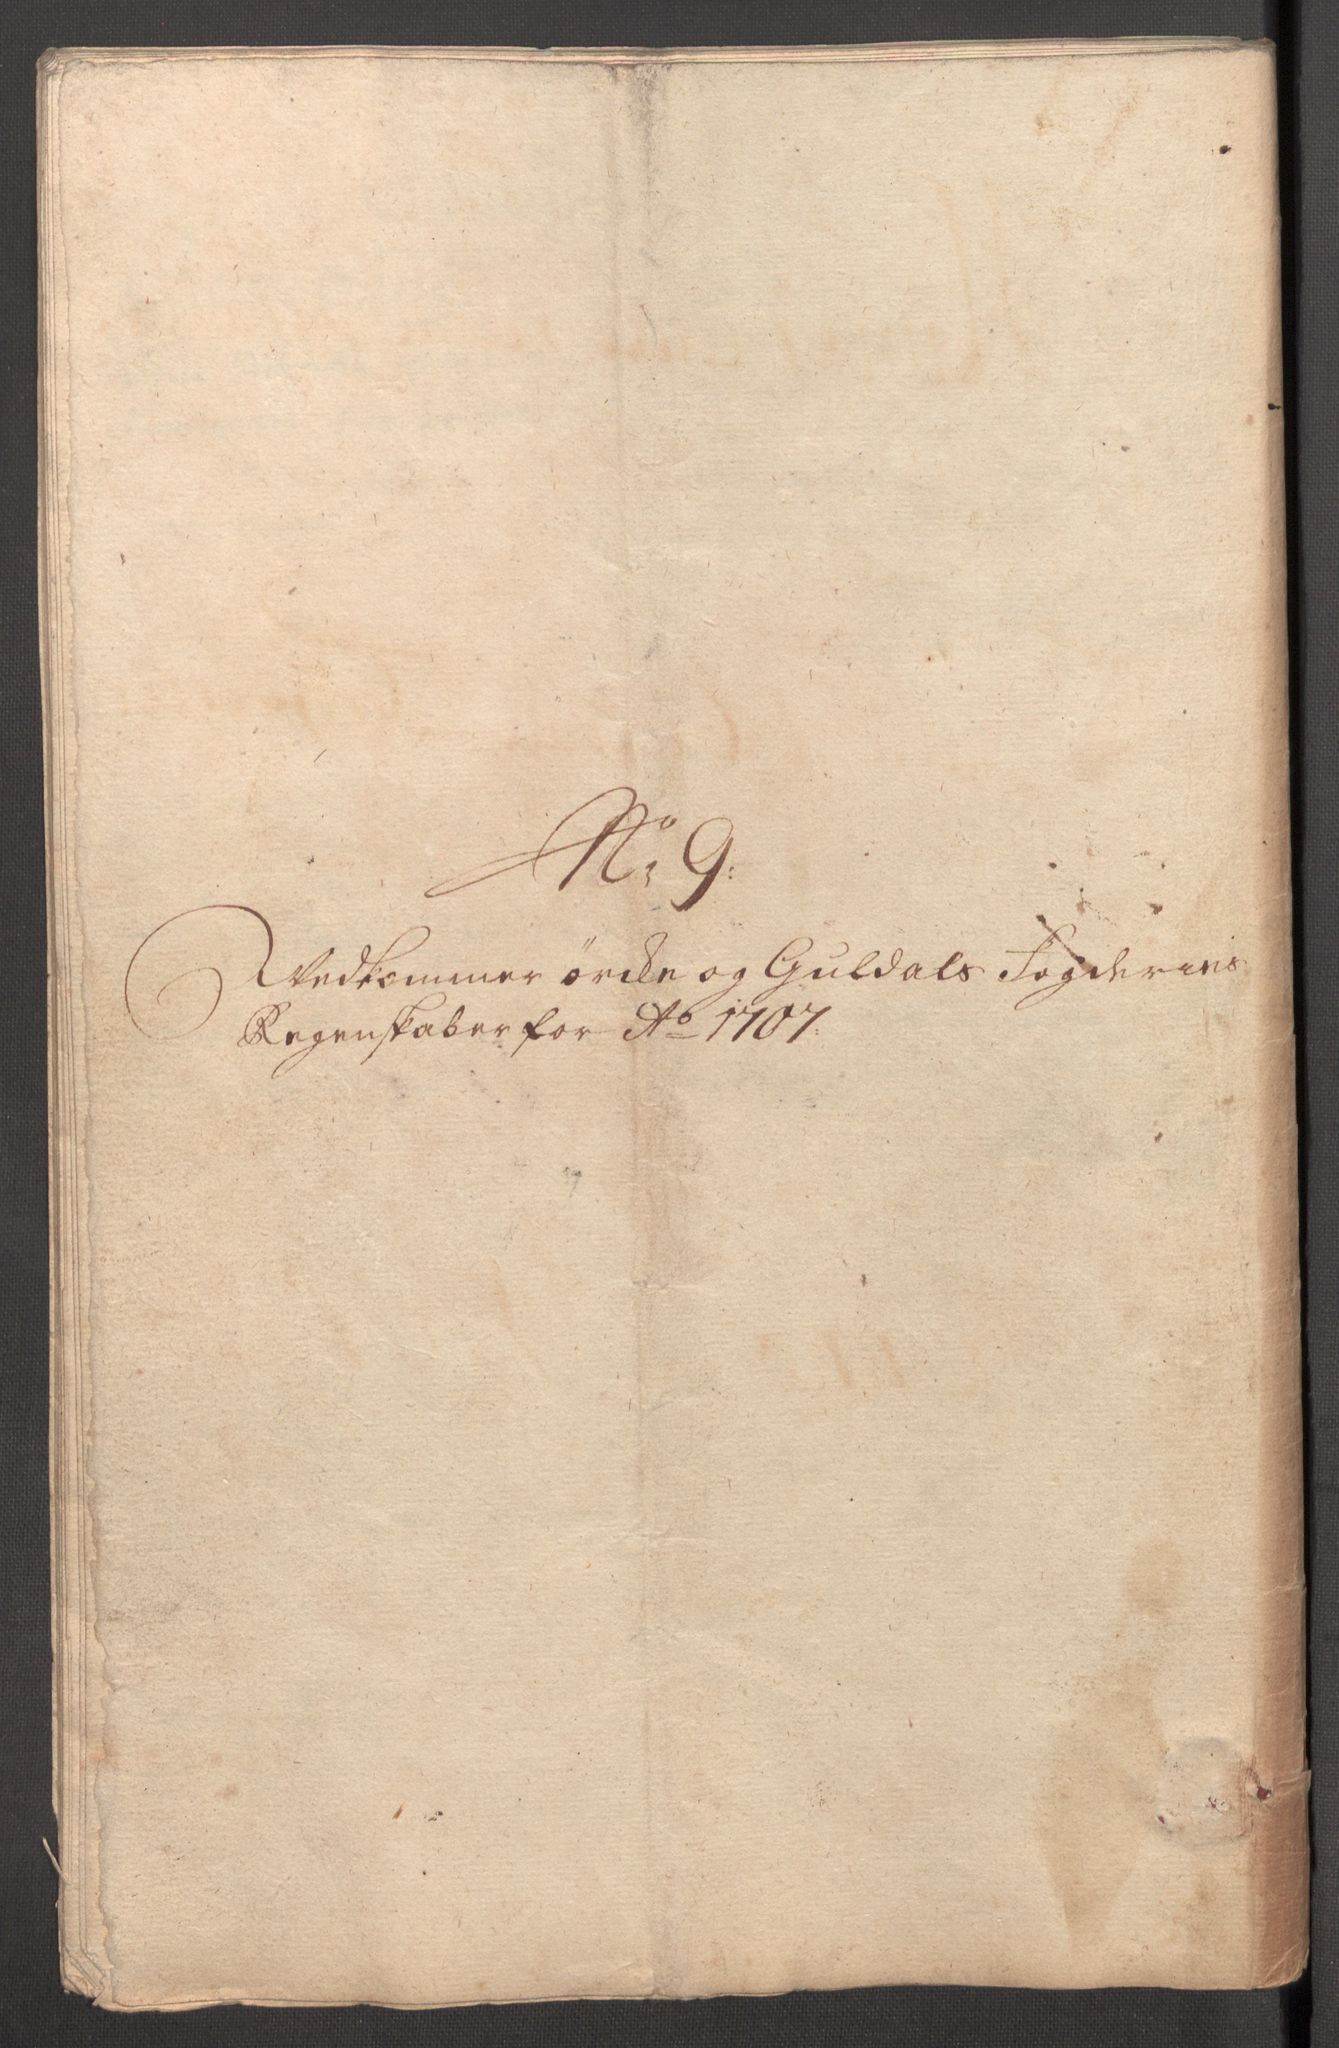 No: 9:
Vedkommer Örcke og Guldals Fogderies
Regenskaber for Ao 1707.